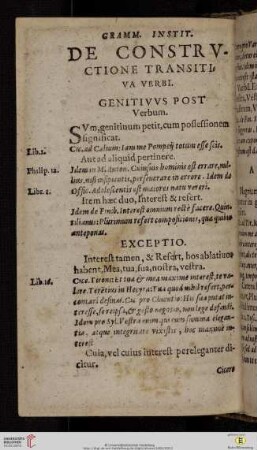 GRAMM. INSTIT.
DE CONSTRV-
CTIONE TRANSITI,
VA VERBI.
GENITIVVS POST
Verbum.
SVm, genitiuum petit, cum possessionem
significat.
Lib.1. Cic. ad Caluum: Iam me Pompeij totum esse scis.
Aut ad aliquid pertinere.
Philip. 12. Idem in M. Anton. Cuiusuis hominis est errare, nul-
lius, nisi insipientis, perseuerare in errore. Idem de
Libr. 1. Offic. Adolescentis est maiores natu vereri.
Item hæc duo, Interest & refert.
Idem de Finib. Interest omnium recte facere. Quin-
tilianus: Plurimum refert compositionis, quæ quibus
anteponas.
EXCEPTIO.
Interest tamen, & Refert, hos ablatiuos
habent, Mea, tua, sua, nostra, vestra.
Lib.16. Cice. Terent. Et tua & mea maxime interest, te va-
lere. Teretius in Hecyra: Tua quod nihil refert, per-
contari desinas. Cic. pro Cluentio:
Idem pro Syl. Vestra enim, qui cum summa elegan-
tia, atque integritate vixistis, hoc maxime in-
terest
Cuia, vel cuius interest pereleganter di-
citur.
Cicero